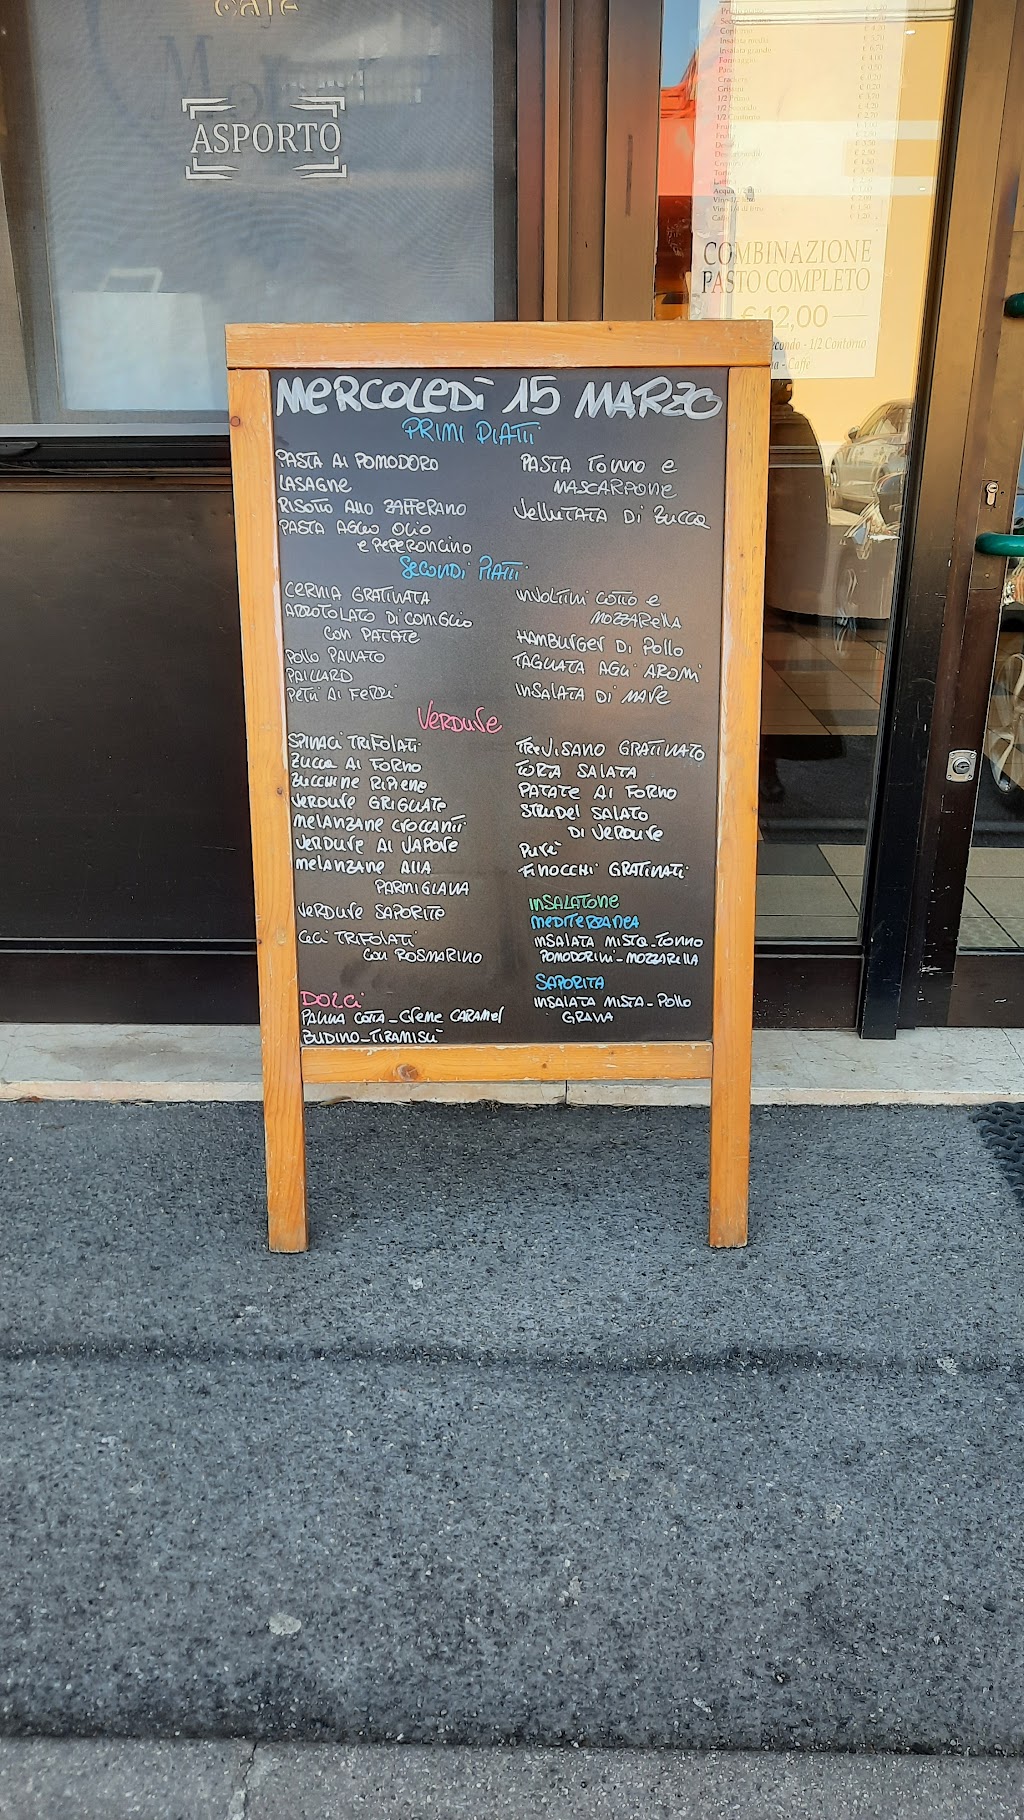 Café
ASPORTO
Insalata mista
Insalata grande
COMBINAZIONE
PASTO COMPLETO
€ 12,00
condo - 1/2 Contorno
- Caffè
MERCOLEDÌ 15 MARZO
PRIMI PIATTI
PASTA AI POMODORO
LASAGNE
RISOTTO ALLO ZAFFERANO
PASTA AGLIO OLIO
e PEPERONCINO
PASTA TONNO e
MASCARPONE
VELLUTATA DI ZUCCA
SECONDI PIATTI
CERNIA GRATINATA
ARROTOLATO DI CONIGLIO
CON PATATE
POLLO PANATO
PAILLARD
PETTI AI FERRI
INVOLTINI COTTO e
MOZZARELLA
HAMBURGER DI POLLO
TAGLIATA AGLI AROMI
INSALATA DI MARE
VERDURE
SPINACI TRIFOLATI
ZUCCA AL FORNO
ZUCCHINE RIPIENE
VERDURE GRIGLIATE
MELANZANE CROCCANTI
VERDURE AL VAPORE
MELANZANE ALLA
PARMIGIANA
VERDURE SAPORITE
CECI TRIFOLATI
CON ROSMARINO
TREVISANO GRATINATO
TORTA SALATA
PATATE AL FORNO
STRUDEL SALATO
DI VERDURE
PURÈ
FINOCCHI GRATINATI
INSALATONE
MEDITERRANEA
INSALATA MISTA-TONNO
POMODORINI-MOZZARELLA
SAPORITA
INSALATA MISTA-POLLO
GRANA
DOLCI
PANNA COTTA-CREME CARAMEL
BUDINO-TIRAMISÙ